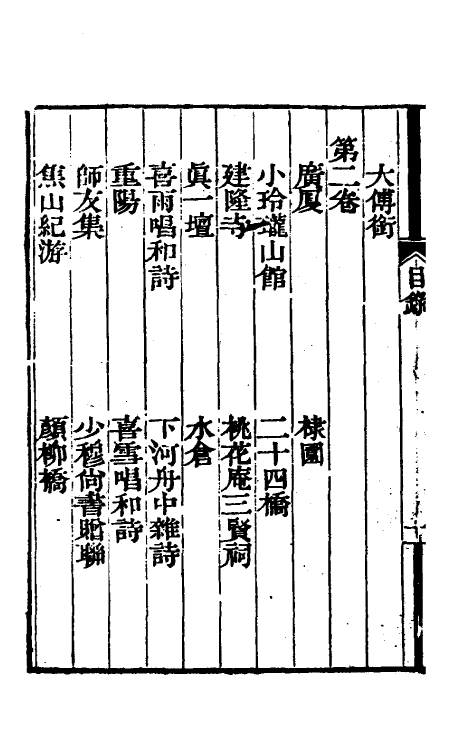 目錄
大傅街
第二卷
廣厦
棣園
小玲瓏山館
二十四橋
建隆寺
桃花庵三賢祠
眞一壇
水倉
喜雨唱和詩
下河舟中雜詩
重陽
喜雪唱和詩
師友集
少穆尚書贈聯
焦山紀游
顏柳橋